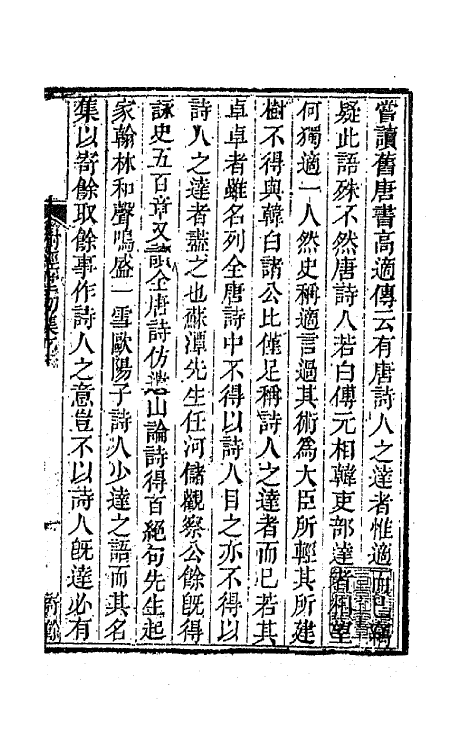 嘗讀舊唐書高適傳云有唐詩人之達者惟適而已竊
疑此語殊不然唐詩人若白傅元相韓吏部達者相望
何獨適一人然史稱適言過其術為大臣所輕其所建
樹不得與韓白諸公比僅足稱詩人之達者而已若其
卓卓者雖名列全唐詩中不得以詩人目之亦不得以
詩人之達者蓋之也蘇潭先生任河儲觀察公餘既得
詠史五百章又讀全唐詩仿遺山論詩得百絕句先生起
家翰林和聲鳴盛一雪歐陽子詩人少達之語而其名
集以寄餘取餘事作詩人之意豈不以詩人既達必有